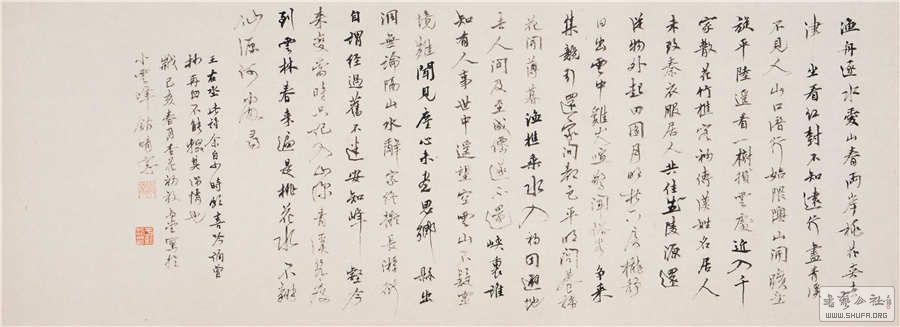 漁舟逐水愛山春兩岸桃花夾古
津坐看紅樹不知遠行盡青溪
不見人山口潛行始隈隩山開曠望
旋平陸遙看一樹攢雲處近入千
家散花竹樵客初傳漢姓名居人
未改秦衣服居人共住武陵源還
從物外起田園月明松下房櫳靜
日出雲中雞犬喧驚聞俗客爭來
集競引還家問都邑平明閭巷掃
花開薄暮漁樵乘水入初因避地
去人間及至成僊遂不還峽裏誰
知有人事世中遙望空雲山不疑靈
境難聞見塵心未盡思鄉縣出
洞無論隔山水辭家終擬長游衍
自謂經過舊不迷安知峰壑今
來變當時只記入山深青溪幾度
到雲林春來遍是桃花水不辨
仙源何處尋
王右丞此詩余自少時喜吟誦
再四不能輟其深情也
己亥春月杏花初放寫於
小雲峰
書藝公社
WWW.SHUFA.ORG